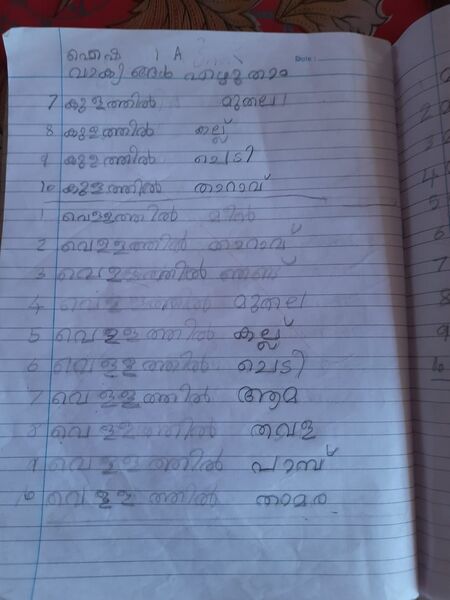 ഐഷ 1 A
Date :
വാക്യങ്ങൾ എഴുതാം
7 കുളത്തിൽ മുതല
8 കുളത്തിൽ കല്ല്
9 കുളത്തിൽ ചെടി
10 കുളത്തിൽ താറാവ്
1 വെള്ളത്തിൽ മീൻ
2 വെള്ളത്തിൽ താറാവ്
3 വെള്ളത്തിൽ ഞണ്ട്
4 വെള്ളത്തിൽ മുതല
5 വെള്ളത്തിൽ കല്ല്
6 വെള്ളത്തിൽ ചെടി
7 വെള്ളത്തിൽ ആമ
8 വെള്ളത്തിൽ തവള
9 വെള്ളത്തിൽ പാമ്പ്
10 വെള്ളത്തിൽ താമര